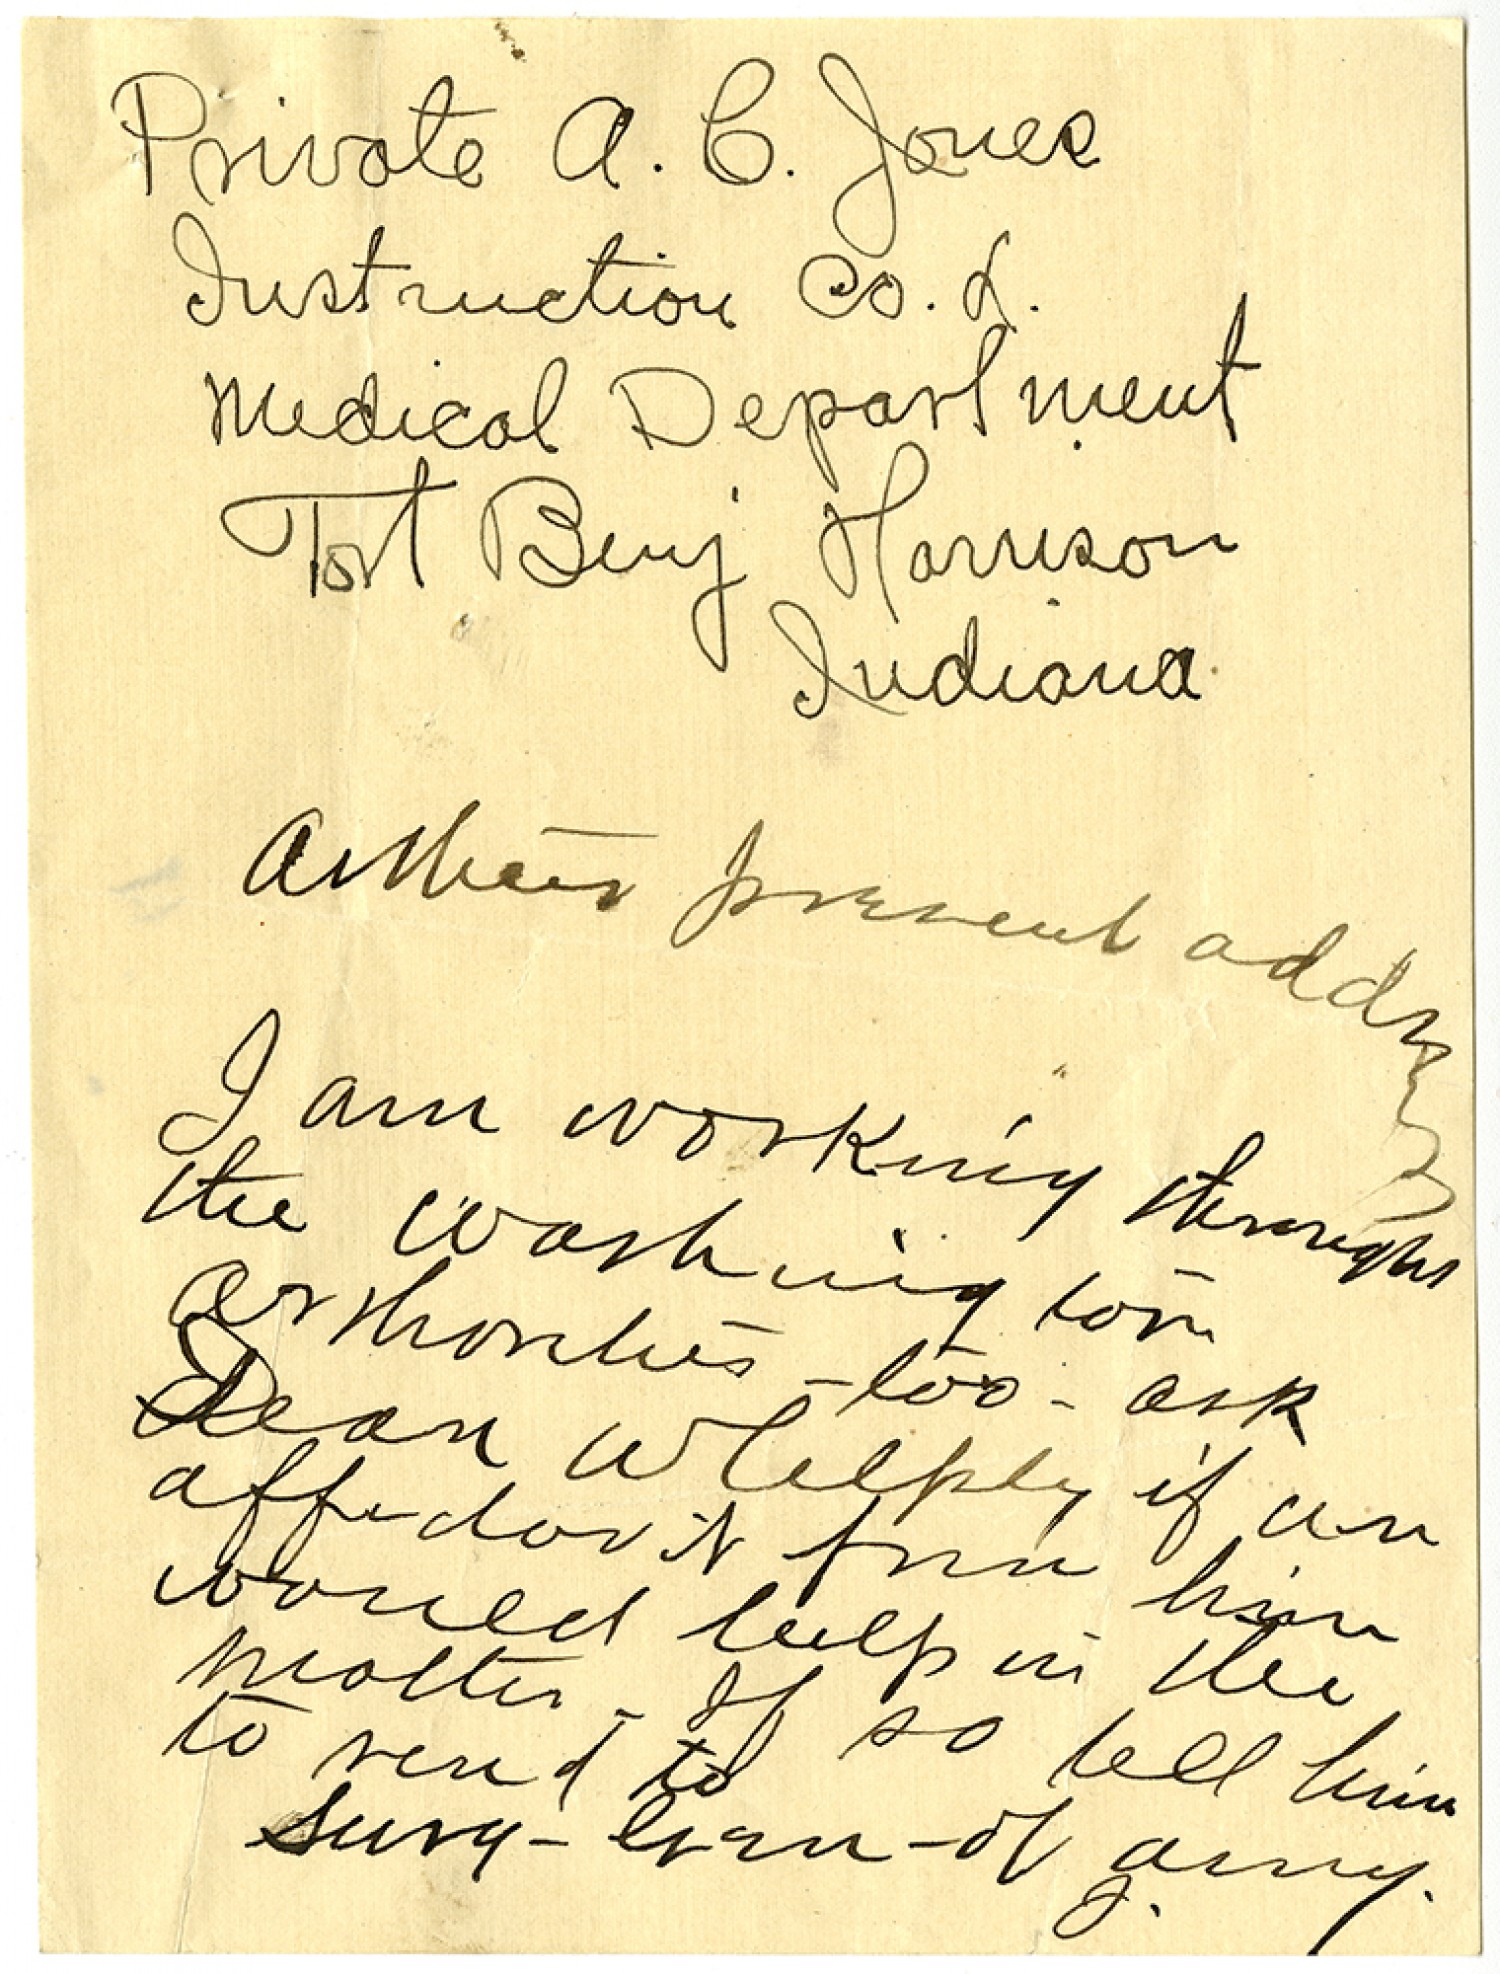 Private A. C. Jones
Instruction Co. L.
Medical Department
Fort Benj Harrison
Indiana
Arthur's present address
I am working through
the Washington
Orthorties - too - ask
Dean Whelpley if an
affidavit from him
would help in the
matter - If so tell him
to send to
Surg - Gen - of army.